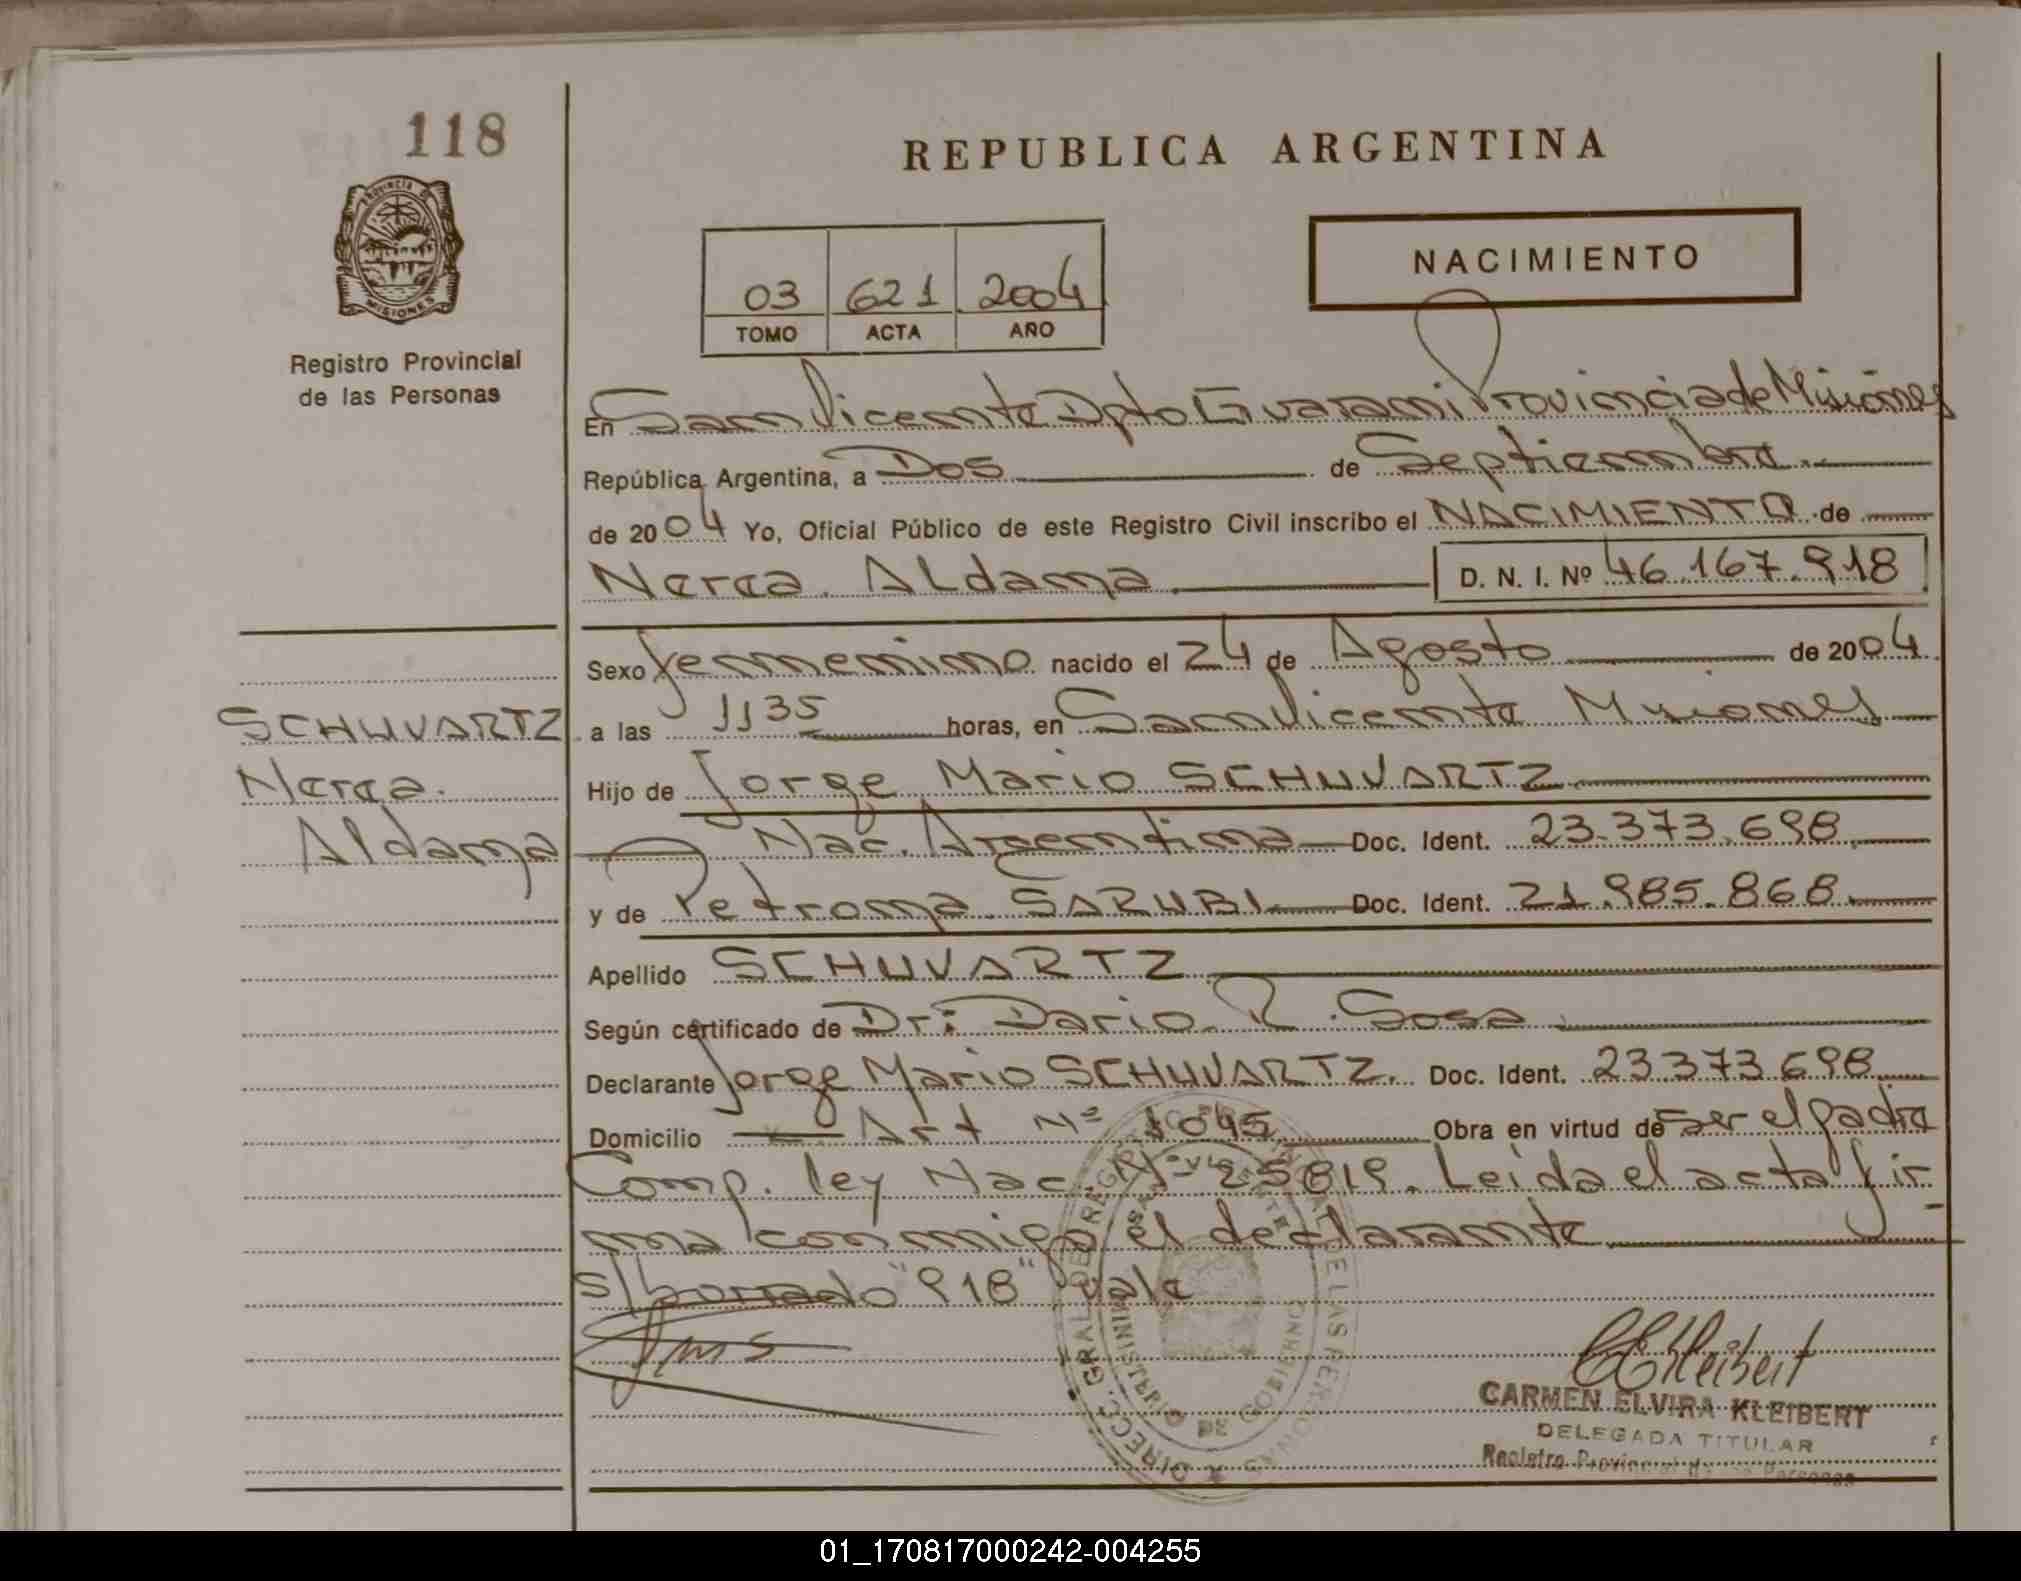 118
PROVINCIA DE
MISIONES
Registro Provincial
de las Personas
REPUBLICA ARGENTINA
NACIMIENTO
03 621 2004
TOMO ACTA AÑO
En San Vicente Dpto Guarani Provincia de Misiones
República Argentina, a Dos de Septiembre
de 2004 Yo, Oficial Público de este Registro Civil inscribo el NACIMIENTO de
Nerea Aldana D. N. I. Nº 46.167.918
Sexo femenino nacido el 24 de Agosto de 2004
SCHUVARTZ
Nerea
Aldana
a las 1135 horas, en San Vicente Misiones
Hijo de Jorge Mario SCHUVARTZ
Nac. Argentina Doc. Ident. 23.373.698
y de Petrona SARUBI Doc. Ident. 21.985.868
Apellido SCHUVARTZ
Según certificado de Dr: Dario R. Sosa
Declarante Jorge Mario SCHUVARTZ. Doc. Ident. 23373698
Domicilio Art Nº 1045 Obra en virtud de ser el padre
Comp. ley Nac Nº 25819. Leida el acta fir
ma conmigo el declarante
s/borrado "918" vale
CARMEN ELVIRA KLEIBERT
DELEGADA TITULAR
Registro Provincial de las Personas
01_170817000242-004255